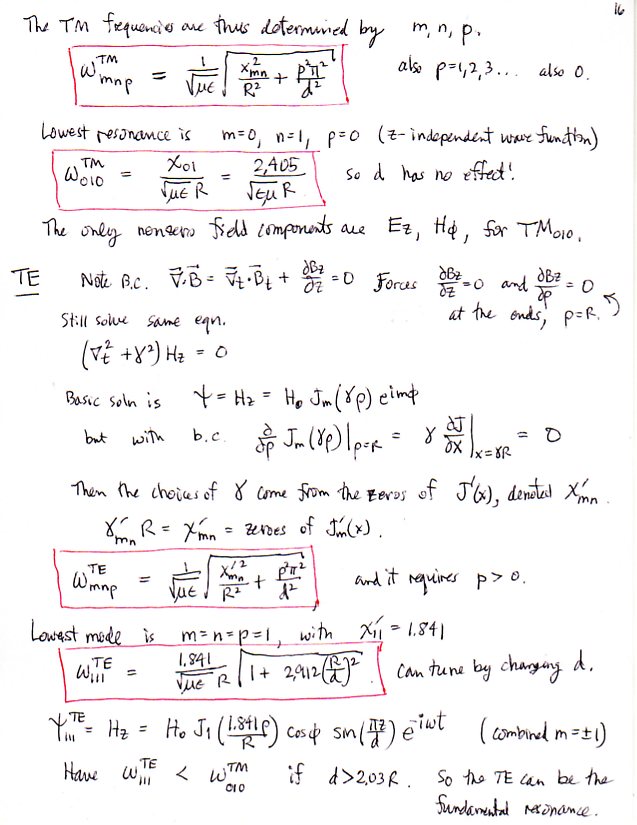 16
The TM frequencies are thus determined by m, n, p.
ω_{mnp}^{TM} = 1/√(με) √(x_{mn}^2/R^2 + p^2π^2/d^2) also p=1,2,3... also 0.
Lowest resonance is m=0, n=1, p=0 (z-independent wave function)
ω_{010}^{TM} = x_{01}/(√(με) R) = 2.405/(√(εμ) R) so d has no effect!
The only nonzero field components are E_z, H_φ, for TM_{010}.
TE Note B.C. ∇⃗·B⃗ = ∇⃗_t·B⃗_t + ∂B_z/∂z = 0 Forces ∂B_z/∂z = 0 and ∂B_z/∂ρ = 0
at the ends, ρ=R.
Still solve same eqn.
(∇_t^2 + γ^2) H_z = 0
Basic soln is ψ = H_z = H_0 J_m(γρ) e^{imφ}
but with b.c. ∂/∂ρ J_m(γρ)|_{ρ=R} = γ ∂J/∂x|_{x=γR} = 0
Then the choices of γ come from the zeros of J'(x), denoted x'_{mn}.
γ'_{mn} R = x'_{mn} = zeroes of J'_m(x).
ω_{mnp}^{TE} = 1/√(με) √(x'_{mn}^2/R^2 + p^2π^2/d^2) and it requires p > 0.
Lowest mode is m=n=p=1, with x'_{11} = 1.841
ω_{111}^{TE} = 1.841/(√(με) R) √(1 + 2.912(R/d)^2). Can tune by changing d.
ψ_{111}^{TE} = H_z = H_0 J_1(1.841ρ/R) cosφ sin(πz/d) e^{-iωt} (combined m=±1)
Have ω_{111}^{TE} < ω_{010}^{TM} if d>2.03R. So the TE can be the
fundamental resonance.